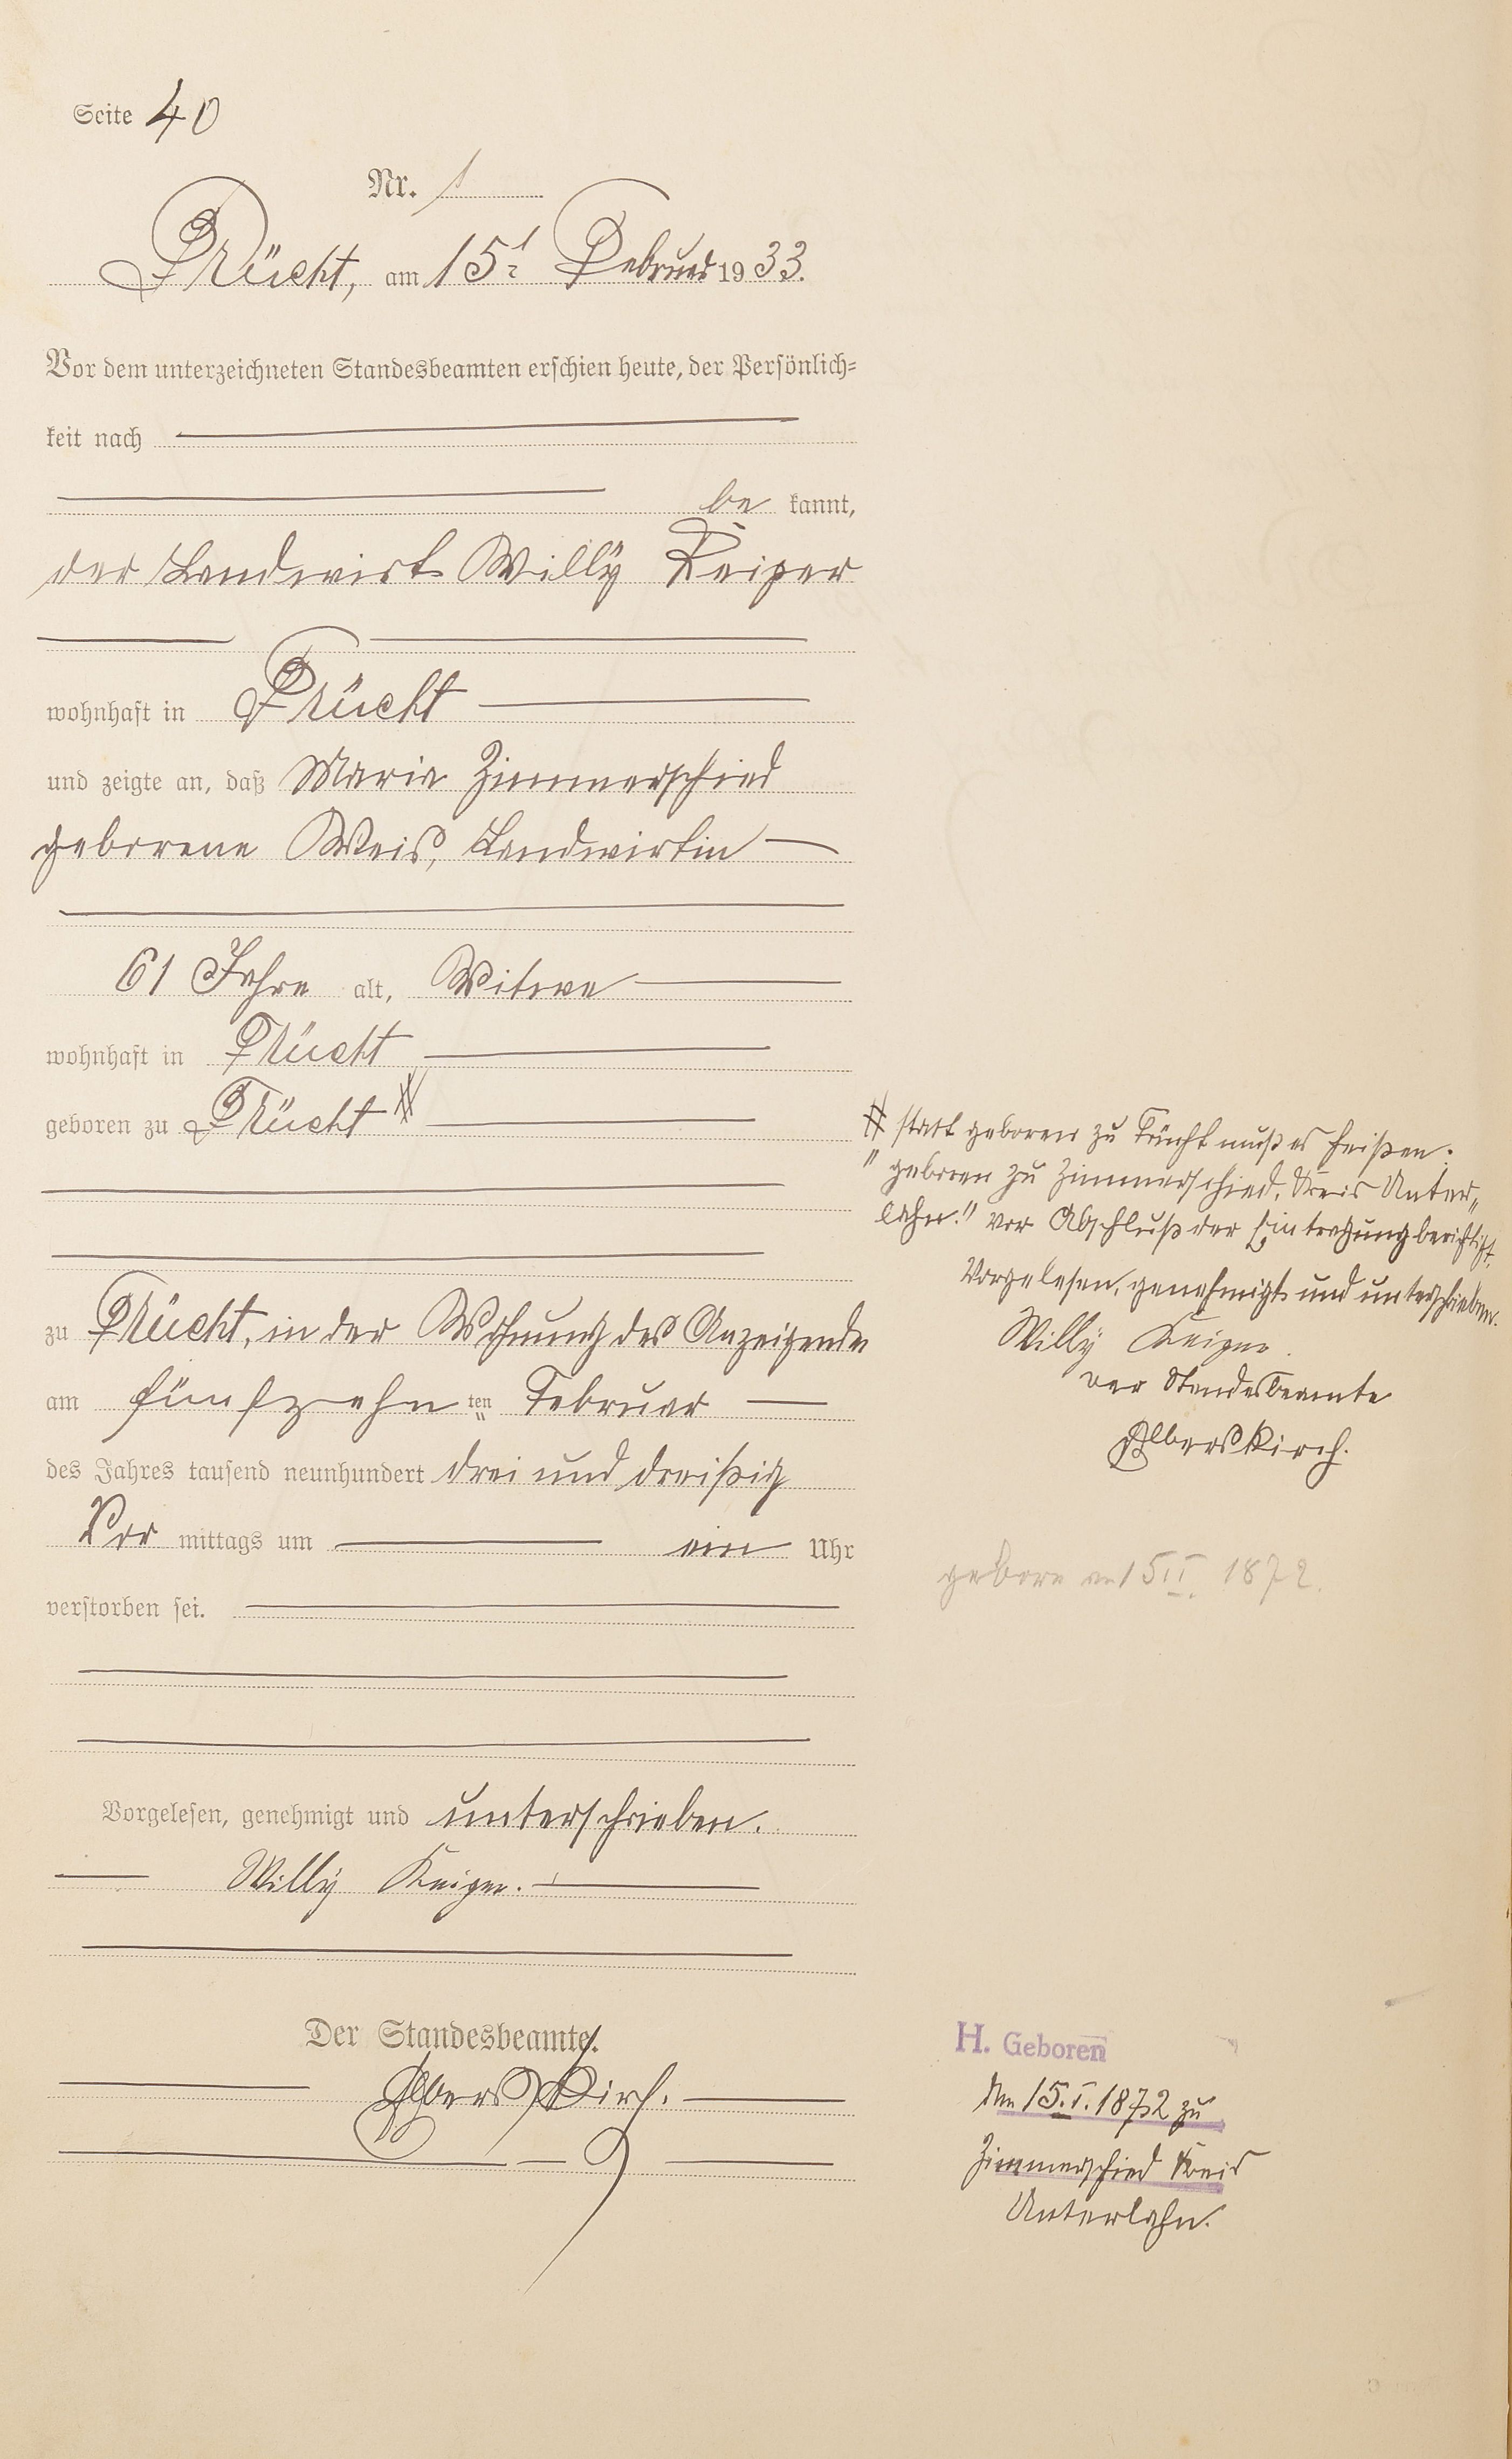 Seite 40
Nr. 1
Frücht, am 15t Februar 1933.
Vor dem unterzeichneten Standesbeamten erschien heute, der Persönlich=
keit nach
be kannt,
der Landwirt Willy Keiper
wohnhaft in Frücht
und zeigte an, daß Maria Zimmerschied
geborene Weis, Landwirtin
61 Jahre alt, Witwe
wohnhaft in Frücht
geboren zu Frücht #
zu Frücht, in der Wohnung des Anzeigende
am fünfzehn ten Februar
des Jahres tausend neunhundert drei und dreißig
Vor mittags um ein Uhr
verstorben sei.
Vorgelesen, genehmigt und unterschrieben.
Willy Keiper.
Der Standesbeamte.
Alberskirch.
# statt geboren zu Frücht muß es heißen:
"geboren zu Zimmerschied, Kreis Unter„
lahn." vor Abschluß der Eintragung berichtigt.
Vorgelesen, genehmigt und unterschrieben.
Willy Keiper.
Der Standesbeamte
Alberskirch.
geboren am 15 II. 1872.
H. Geboren
Am 15.I.1872 zu
Zimmerschied Kreis
Unterlahn.